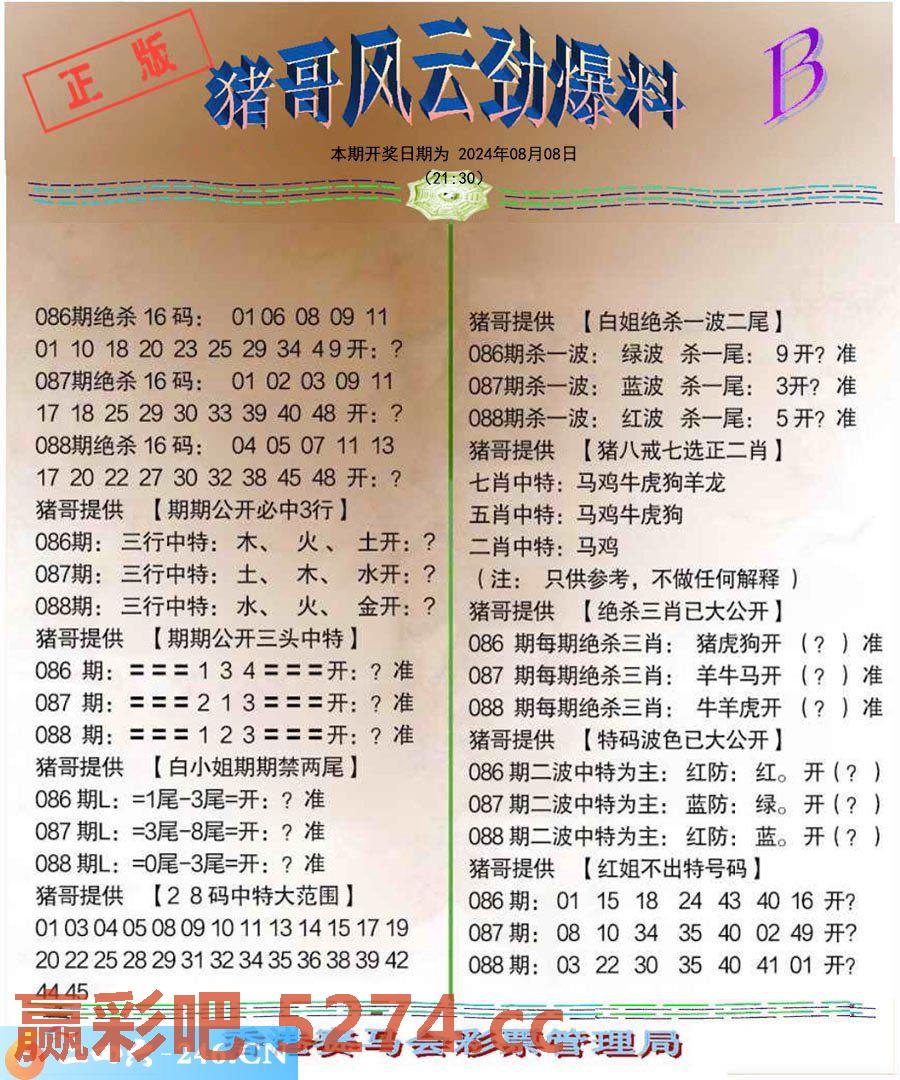 正版
猪哥风云劲爆料
B
本期开奖日期为 2024年08月08日
(21:30)
086期绝杀 16 码： 01 06 08 09 11
01 10 18 20 23 25 29 34 4 9 开：？
087期绝杀 16 码： 01 02 03 09 11
17 18 25 29 30 33 39 40 48 开：？
088期绝杀 16 码： 04 05 07 11 13
17 20 22 27 30 32 38 45 48 开：？
猪哥提供 【期期公开必中3行】
086期： 三行中特：木、 火、 土开：？
087期： 三行中特：土、 木、 水开：？
088期： 三行中特：水、 火、 金开：？
猪哥提供 【期期公开三头中特】
086 期：＝＝＝1 3 4＝＝＝开：？准
087 期：＝＝＝2 1 3＝＝＝开：？准
088 期：＝＝＝1 2 3＝＝＝开：？准
猪哥提供 【白小姐期期禁两尾】
086 期L：=1尾-3尾=开：？准
087 期L：=3尾-8尾=开：？准
088 期L：=0尾-3尾=开：？准
猪哥提供 【2 8码中特大范围】
01 03 04 05 08 09 10 11 13 14 15 17 19
20 22 25 28 29 31 32 34 35 36 38 39 42
44 45
猪哥提供 【白姐绝杀一波二尾】
086期杀一波： 绿波 杀一尾： 9 开？准
087期杀一波： 蓝波 杀一尾： 3开？准
088期杀一波： 红波 杀一尾： 5 开？准
猪哥提供 【猪八戒七选正二肖】
七肖中特：马鸡牛虎狗羊龙
五肖中特：马鸡牛虎狗
二肖中特：马鸡
（注： 只供参考，不做任何解释）
猪哥提供 【绝杀三肖已大公开】
086 期每期绝杀三肖： 猪虎狗开 （？）准
087 期每期绝杀三肖： 羊牛马开 （？）准
088 期每期绝杀三肖： 牛羊虎开 （？）准
猪哥提供 【特码波色已大公开】
086 期二波中特为主：红防：红。开（？）
087 期二波中特为主：蓝防：绿。开（？）
088 期二波中特为主：红防：蓝。开（？）
猪哥提供 【红姐不出特号码】
086 期： 01 15 18 24 43 40 16 开?
087 期： 08 10 34 35 40 02 49 开?
088 期： 03 22 30 35 40 41 01 开?
赢彩吧 5274.cc
马会彩票管理局